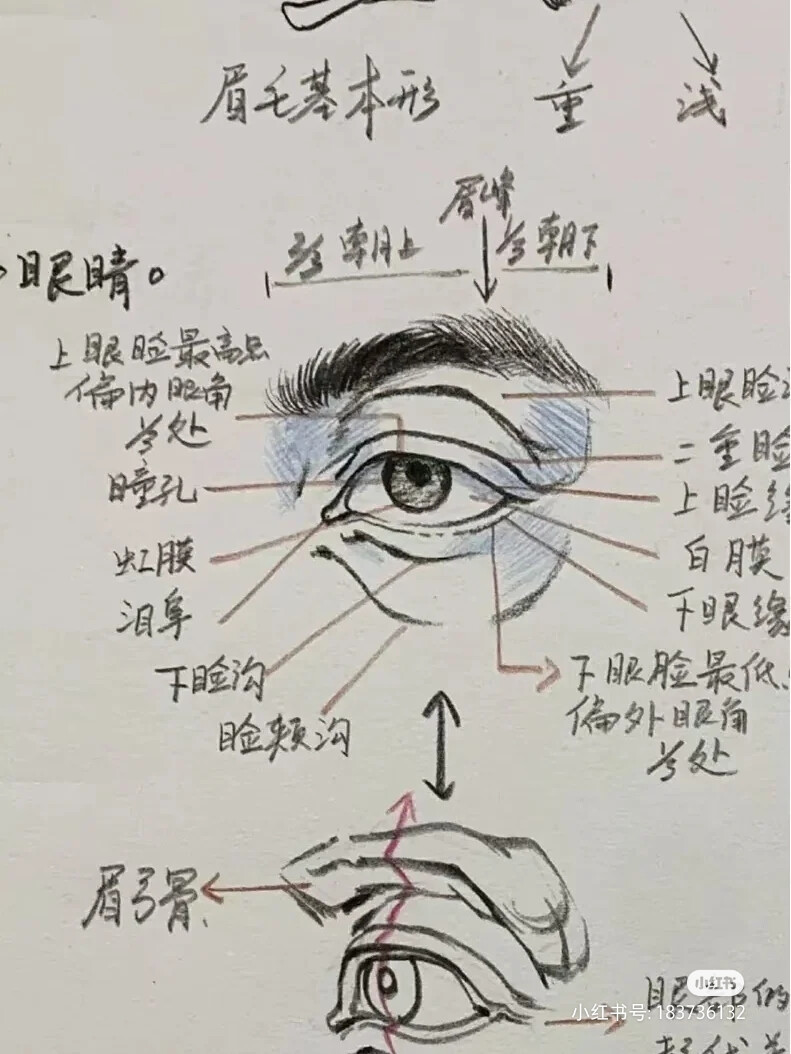 眉毛基本形
重
浅
眉峰
⅔朝上
⅓朝下
眼睛。
上眼睑最高点
偏内眼角
⅓处
瞳孔
虹膜
泪阜
下睑沟
睑颊沟
上眼睑
二重睑
上睑缘
白膜
下眼缘
下眼脸最低
偏外眼角
⅓处
眉弓骨
眼部的
小红书
小红书号:183736132